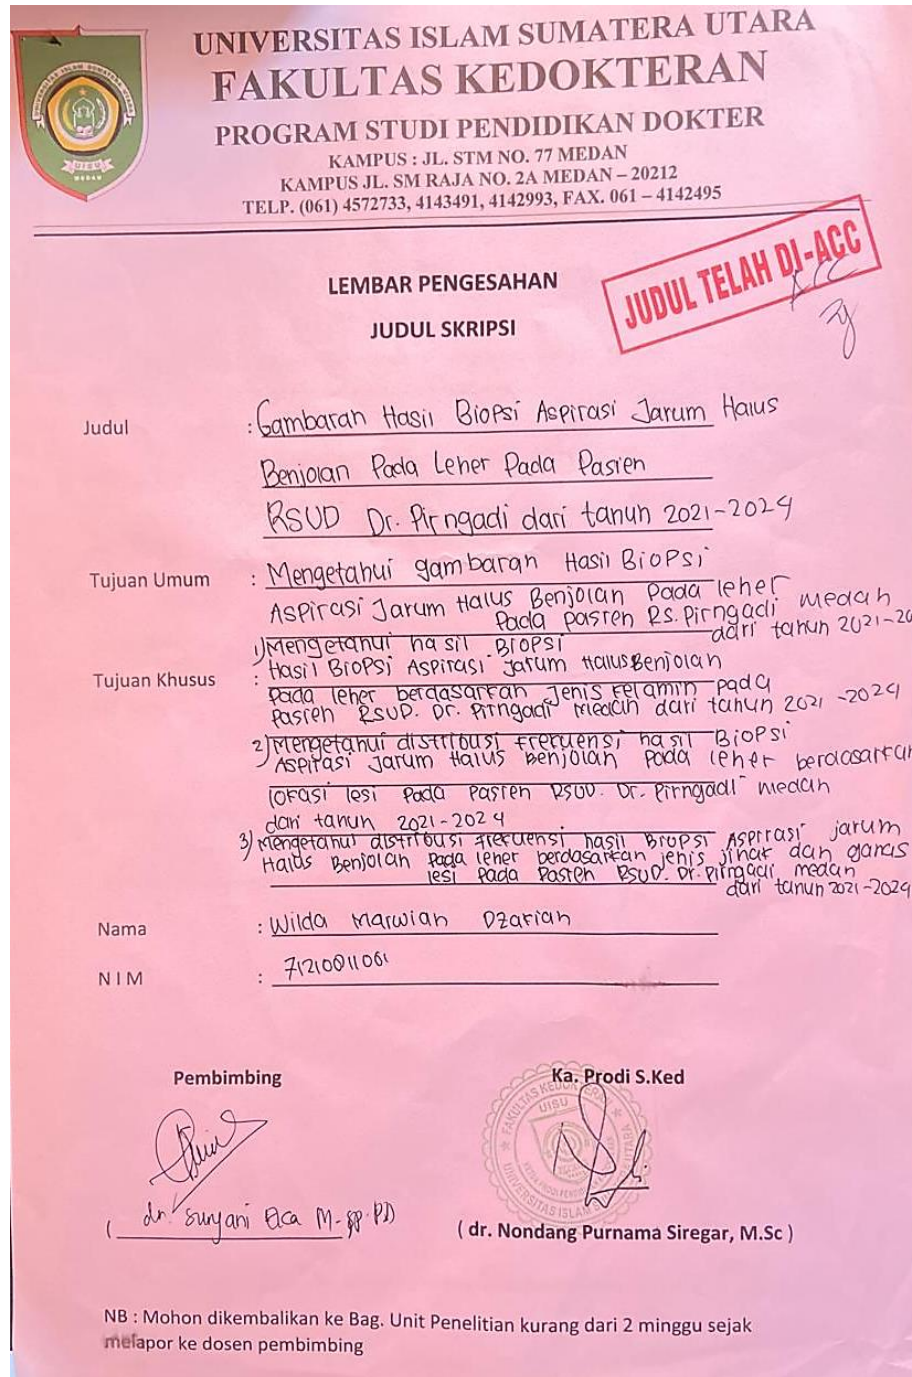 UNIVERSITAS ISLAM SUMATERA UTARA
FAKULTAS KEDOKTERAN
PROGRAM STUDI PENDIDIKAN DOKTER
KAMPUS : JL. STM NO. 77 MEDAN
KAMPUS JL. SM RAJA NO. 2A MEDAN – 20212
TELP. (061) 4572733, 4143491, 4142993, FAX. 061 – 4142495
UISU
MEDAN
JUDUL TELAH DI-ACC
ACC
LEMBAR PENGESAHAN
JUDUL SKRIPSI
Judul : Gambaran Hasil Biopsi Aspirasi Jarum Halus
Benjolan Pada Leher Pada Pasien
RSUD Dr. Pirngadi dari tahun 2021-2024
Tujuan Umum : Mengetahui gambaran Hasil Biopsi
Aspirasi Jarum Halus Benjolan Pada leher
Pada pasien RS. Pirngadi medan
dari tahun 2021-20
Tujuan Khusus : 1) Mengetahui hasil Biopsi
Hasil Biopsi Aspirasi jarum Halus Benjolan
Pada leher berdasarkan Jenis kelamin pada
Pasien RSUD. Dr. Pirngadi Medan dari tahun 2021-2024
2) Mengetahui distribusi frekuensi hasil Biopsi
Aspirasi Jarum Halus Benjolan Pada leher berdasarkan
lokasi lesi Pada Pasien RSUD. Dr. Pirngadi medan
dari tahun 2021-2024
3) Mengetahui distribusi frekuensi hasil Biopsi Aspirasi jarum
Halus Benjolan Pada leher berdasarkan jenis jinak dan ganas
lesi Pada Pasien RSUD. Dr. Pirngadi medan
dari tahun 2021-2024
Nama : Wilda Marwiah Dzariah
NIM : 71210011061
Pembimbing
Ka. Prodi S.Ked
UISU
( dr. Suryani Eka M-
( dr. Nondang Purnama Siregar, M.Sc )
NB : Mohon dikembalikan ke Bag. Unit Penelitian kurang dari 2 minggu sejak
melapor ke dosen pembimbing